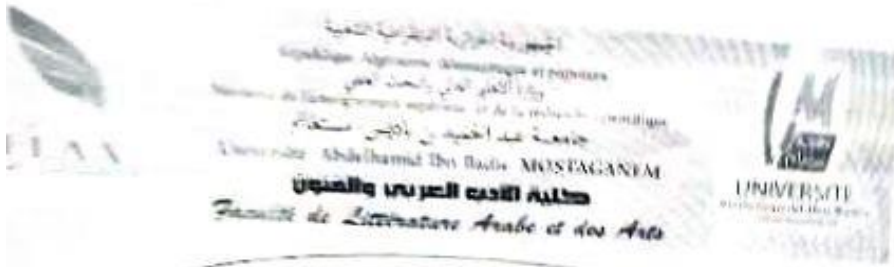 الجمهورية الجزائرية الديمقراطية الشعبية
République Algérienne démocratique et populaire
وزارة التعليم العالي والبحث العلمي
Ministère de l'enseignement supérieur et de la recherche scientifique
جامعة عبد الحميد بن باديس مستغانم
Université Abdelhamid Ibn Badis MOSTAGANEM
كلية الأدب العربي والفنون
Faculté de Littérature Arabe et des Arts
UNIVERSITE